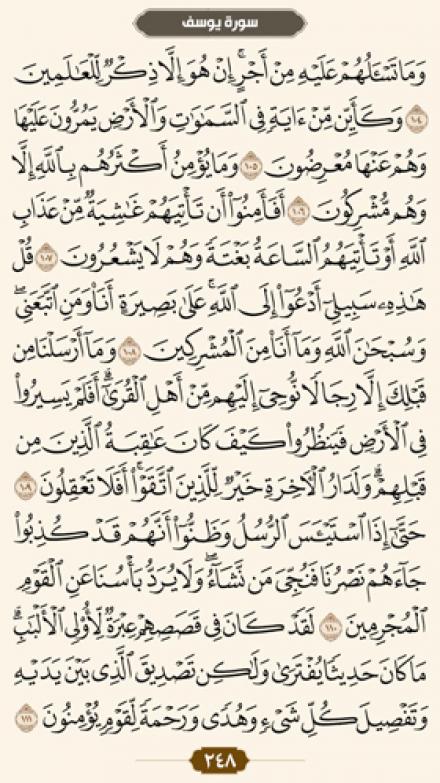 سورة يوسف
وَمَا تَسْـَٔلُهُمْ عَلَيْهِ مِنْ أَجْرٍۚ إِنْ هُوَ إِلَّا ذِكْرٌ لِّلْعَٰلَمِينَ
١٠٤ وَكَأَيِّن مِّنْ ءَايَةٍ فِى ٱلسَّمَٰوَٰتِ وَٱلْأَرْضِ يَمُرُّونَ عَلَيْهَا
وَهُمْ عَنْهَا مُعْرِضُونَ ١٠٥ وَمَا يُؤْمِنُ أَكْثَرُهُم بِٱللَّهِ إِلَّا
وَهُم مُّشْرِكُونَ ١٠٦ أَفَأَمِنُوٓا۟ أَن تَأْتِيَهُمْ غَٰشِيَةٌ مِّنْ عَذَابِ
ٱللَّهِ أَوْ تَأْتِيَهُمُ ٱلسَّاعَةُ بَغْتَةً وَهُمْ لَا يَشْعُرُونَ ١٠٧ قُلْ
هَٰذِهِۦ سَبِيلِىٓ أَدْعُوٓا۟ إِلَى ٱللَّهِۚ عَلَىٰ بَصِيرَةٍ أَنَا۠ وَمَنِ ٱتَّبَعَنِىۖ
وَسُبْحَٰنَ ٱللَّهِ وَمَآ أَنَا۠ مِنَ ٱلْمُشْرِكِينَ ١٠٨ وَمَآ أَرْسَلْنَا مِن
قَبْلِكَ إِلَّا رِجَالًا نُّوحِىٓ إِلَيْهِم مِّنْ أَهْلِ ٱلْقُرَىٰٓۗ أَفَلَمْ يَسِيرُوا۟
فِى ٱلْأَرْضِ فَيَنظُرُوا۟ كَيْفَ كَانَ عَٰقِبَةُ ٱلَّذِينَ مِن
قَبْلِهِمْۗ وَلَدَارُ ٱلْءَاخِرَةِ خَيْرٌ لِّلَّذِينَ ٱتَّقَوْا۟ۚ أَفَلَا تَعْقِلُونَ ١٠٩
حَتَّىٰٓ إِذَا ٱسْتَيْـَٔسَ ٱلرُّسُلُ وَظَنُّوٓا۟ أَنَّهُمْ قَدْ كُذِبُوا۟
جَآءَهُمْ نَصْرُنَا فَنُجِّىَ مَن نَّشَآءُۖ وَلَا يُرَدُّ بَأْسُنَا عَنِ ٱلْقَوْمِ
ٱلْمُجْرِمِينَ ١١٠ لَقَدْ كَانَ فِى قَصَصِهِمْ عِبْرَةٌ لِّأُو۟لِى ٱلْأَلْبَٰبِۗ
مَا كَانَ حَدِيثًا يُفْتَرَىٰ وَلَٰكِن تَصْدِيقَ ٱلَّذِى بَيْنَ يَدَيْهِ
وَتَفْصِيلَ كُلِّ شَىْءٍ وَهُدًى وَرَحْمَةً لِّقَوْمٍ يُؤْمِنُونَ ١١١
٢٤٨